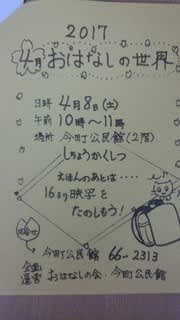 2017
4月おはなしの世界
日時 4月8日(土)
午前 10時～11時
場所 今町公民館(2階)
しちょうかくしつ
えほんのあとは……
16ミリ映写を
たのしもう!
問合せ
今町公民館 66-2313
企画
運営 おはなしの会・今町公民館